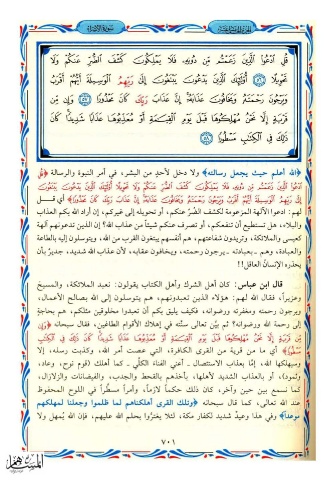 سورة الإسراء
قُلِ ادْعُوا الَّذِينَ زَعَمْتُم مِّن دُونِهِ فَلَا يَمْلِكُونَ كَشْفَ الضُّرِّ عَنكُمْ وَلَا
تَحْوِيلًا ۝٥٦ أُولَٰئِكَ الَّذِينَ يَدْعُونَ يَبْتَغُونَ إِلَىٰ رَبِّهِمُ الْوَسِيلَةَ أَيُّهُمْ أَقْرَبُ
وَيَرْجُونَ رَحْمَتَهُ وَيَخَافُونَ عَذَابَهُ إِنَّ عَذَابَ رَبِّكَ كَانَ مَحْذُورًا ۝٥٧ وَإِن مِّن
قَرْيَةٍ إِلَّا نَحْنُ مُهْلِكُوهَا قَبْلَ يَوْمِ الْقِيَامَةِ أَوْ مُعَذِّبُوهَا عَذَابًا شَدِيدًا كَانَ
ذَٰلِكَ فِي الْكِتَابِ مَسْطُورًا ۝٥٨
﴿الله أعلم حيث يجعل رسالته﴾ ولا دخل لأحدٍ من البشر، في أمر النبوة والرسالة ﴿قُلِ
ادْعُوا الَّذِينَ زَعَمْتُم مِّن دُونِهِ فَلَا يَمْلِكُونَ كَشْفَ الضُّرِّ عَنكُمْ وَلَا تَحْوِيلًا أُولَٰئِكَ الَّذِينَ يَدْعُونَ يَبْتَغُونَ
إِلَىٰ رَبِّهِمُ الْوَسِيلَةَ أَيُّهُمْ أَقْرَبُ وَيَرْجُونَ رَحْمَتَهُ وَيَخَافُونَ عَذَابَهُ إِنَّ عَذَابَ رَبِّكَ كَانَ مَحْذُورًا﴾ أي قل
لهم: ادعوا الآلهة المزعومة لكشف الضُّر عنكم، أو تحويله إلى غيركم، إن أراد الله بكم العذاب
والبلاء، هل تستطيع أن تنفعكم، أو تصرف عنكم شيئاً من عذاب الله؟ إن الذين تدعونهم آلهة
كعيسى والملائكة، وتريدون شفاعتهم، هم أنفسهم يبتغون القرب من الله، ويتوسلون إليه بالطاعة
والعبادة، وهم ـ بعبادته ـ يرجون رحمته، ويخافون عقابه، لأن عذاب الله شديد، جديرٌ بأن
يحذره الإنسان العاقل!!
قال ابن عباس: كان أهل الشرك وأهل الكتاب يقولون: نعبد الملائكة، والمسيح
وعزيراً، فقال الله لهم: هؤلاء الذين تعبدونهم، هم يتوسلون إلى الله بصالح الأعمال،
ويرجون رحمته ومغفرته ورضوانه، فكيف يليق بكم أن تعبدوا مخلوقين مثلكم، هم بحاجةٍ
إلى رحمة الله ورضوانه؟ ثم بيَّن تعالى سنَّته في إهلاك الأقوام الطاغين، فقال سبحانه ﴿وَإِن
مِّن قَرْيَةٍ إِلَّا نَحْنُ مُهْلِكُوهَا قَبْلَ يَوْمِ الْقِيَامَةِ أَوْ مُعَذِّبُوهَا عَذَابًا شَدِيدًا كَانَ ذَٰلِكَ فِي الْكِتَابِ
مَسْطُورًا﴾ أي ما من قرية من القرى الكافرة، التي عصت أمر الله، وكذبت رسله، إلا
وسيهلكها الله، إمَّا بعذاب الاستئصال ـ أعني الفناء الكلِّي ـ كما أهلك (قوم نوح، وعاد،
وثمود)، أو بالعذاب الشديد لأهلها، يأخذهم بالقحط والجدب، والفيضانات والزلازل،
كما نسمع بين حين وآخر، كان ذلك حكماً لازماً، وأمراً مسطَّراً في اللوح المحفوظ
عند الله تعالى، كما قال سبحانه ﴿وتلك القرى أهلكناهم لما ظلموا وجعلنا لمهلكهم
موعداً﴾ وفي هذا وعيدٌ شديد لكفار مكة، لئلا يغترُّوا بحلم الله عليهم، فإن الله يُمهل ولا
٧٠٦